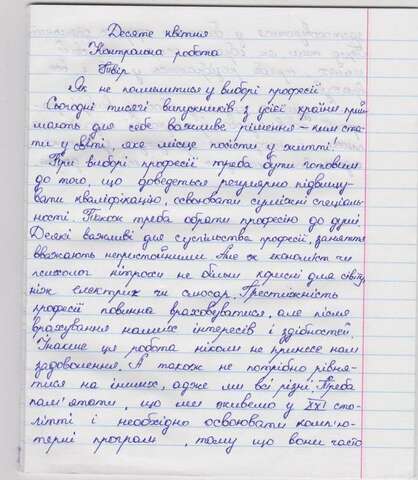 Десяте квітня
Контрольна робота
Твір
Як не помилитися у виборі професії
Сьогодні тисячі випускників з усієї країни прий-
мають для себе важливе рішення – ким ста-
ти у світі, яке місце посісти у житті.
При виборі професії треба бути готовим
до того, що доведеться регулярно підвищу-
вати кваліфікацію, освоювати суміжні спеціаль-
ності. Також треба обрати професію до душі.
Деякі важливі для суспільства професії, заняття
вважають непристойними. Але ж економіст чи
психолог нітрохи не більш корисні для світу,
ніж електрик чи слюсар. Престижність
професії повинна враховуватися, але після
врахування наших інтересів і здібностей.
Інакше ця робота ніколи не принесе нам
задоволення. А також не потрібно рівня-
тися на інших, адже ми всі різні. Треба
пам'ятати, що ми живемо у XXI сто-
літті і необхідно освоювати комп'ю-
терні програми, тому що вони часто